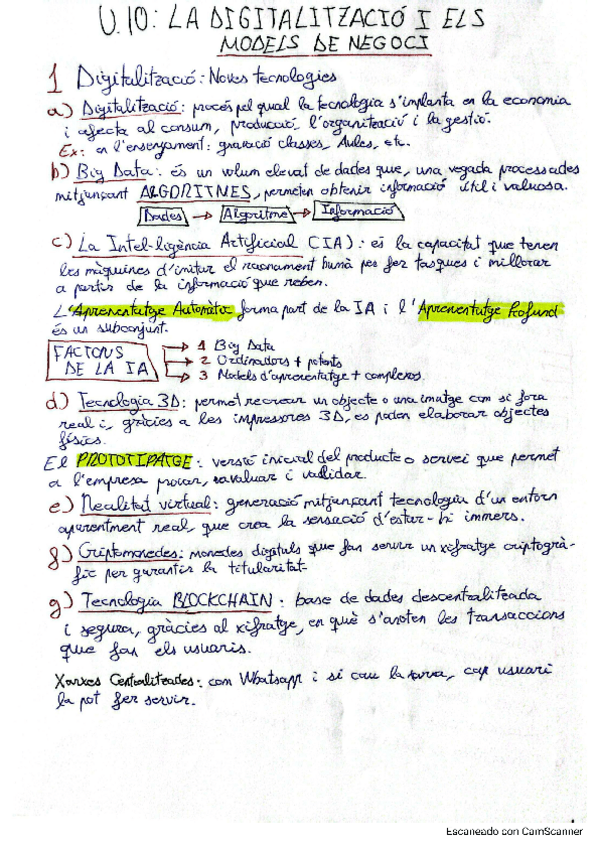 U.10: LA DIGITALITZACIÓ I ELS
MODELS DE NEGOCI
1 Digitalització: Noves tecnologies
a) Digitalizació: procés pel qual la tecnologia s'implanta en la economia
i afecta al consum, producció, l'organització i la gestió.
Ex: en l'ensenyament: gravació classes, Aules, etc.
b) Big Data: és un volum elevat de dades que, una vegada processades
mitjançant ALGORITMES, permeten obtenir informació útil i valuosa.
Dades → Algoritme → Informació
c) La Intel·ligència Artificial (IA): és la capacitat que tenen
les màquines d'imitar el raonament humà per fer tasques i millorar
a partir de la informació que reben.
L'Aprenentatge Automàtic forma part de la IA i l'Aprenentatge Profund
és un subconjunt.
FACTORS DE LA IA
→ 1 Big Data
→ 2 Ordinadors + potents
→ 3 Models d'aprenentatge + complexos
d) Tecnologia 3D: permet recrear un objecte o una imatge com si fora
real i, gràcies a les impressores 3D, es poden elaborar objectes
físics.
El PROTOTIPATGE: versió inicial del producte o servei que permet
a l'empresa provar, avaluar i validar.
e) Realitat virtual: generació mitjançant tecnologia d'un entorn
aparentment real, que crea la sensació d'estar-hi immers.
f) Criptomonedes: monedes digitals que fan servir un xifratge criptogrà-
fic per garantir la titularitat
g) Tecnologia BLOCKCHAIN: base de dades descentralitzada
i segura, gràcies al xifratge, en què s'anoten les transaccions
que fan els usuaris.
Xarxes Centralitzades: com Whatsapp i si cau la xarxa, cap usuari
la pot fer servir.
Escaneado con CamScanner